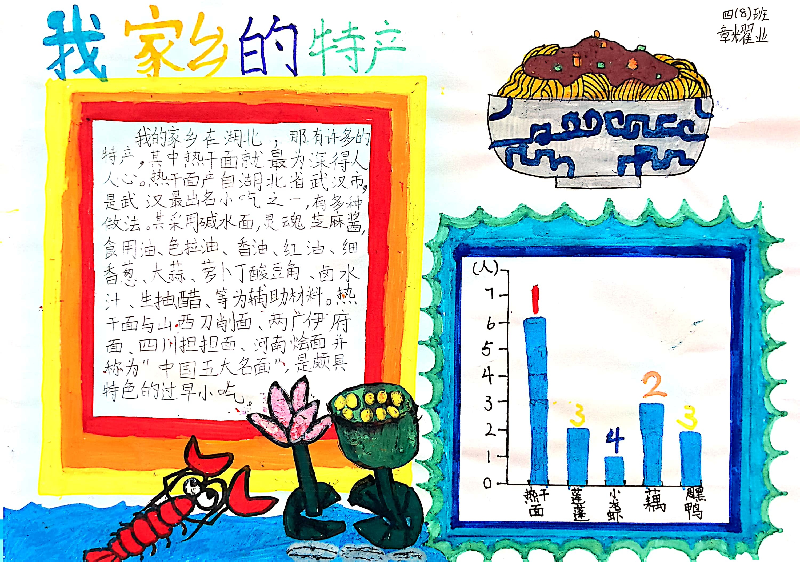 我家乡的特产
四(8)班
章耀业
我的家乡在湖北,那有许多的
特产,其中热干面就最为深得人
人心。热干面产自湖北省武汉市,
是武汉最出名小吃之一,有多种
做法。其采用碱水面,灵魂芝麻酱,
食用油、色拉油、香油、红油、细
香葱、大蒜、萝卜丁酸豆角、卤水
汁、生抽醋、等为辅助材料。热
干面与山西刀削面、两广伊府
面、四川担担面、河南烩面并
称为“中国五大名面”,是颇具
特色的过早小吃。
(人)
7
6
5
4
3
2
1
0
1
3
4
2
3
热干面
莲蓬
小龙虾
藕
黑鸭